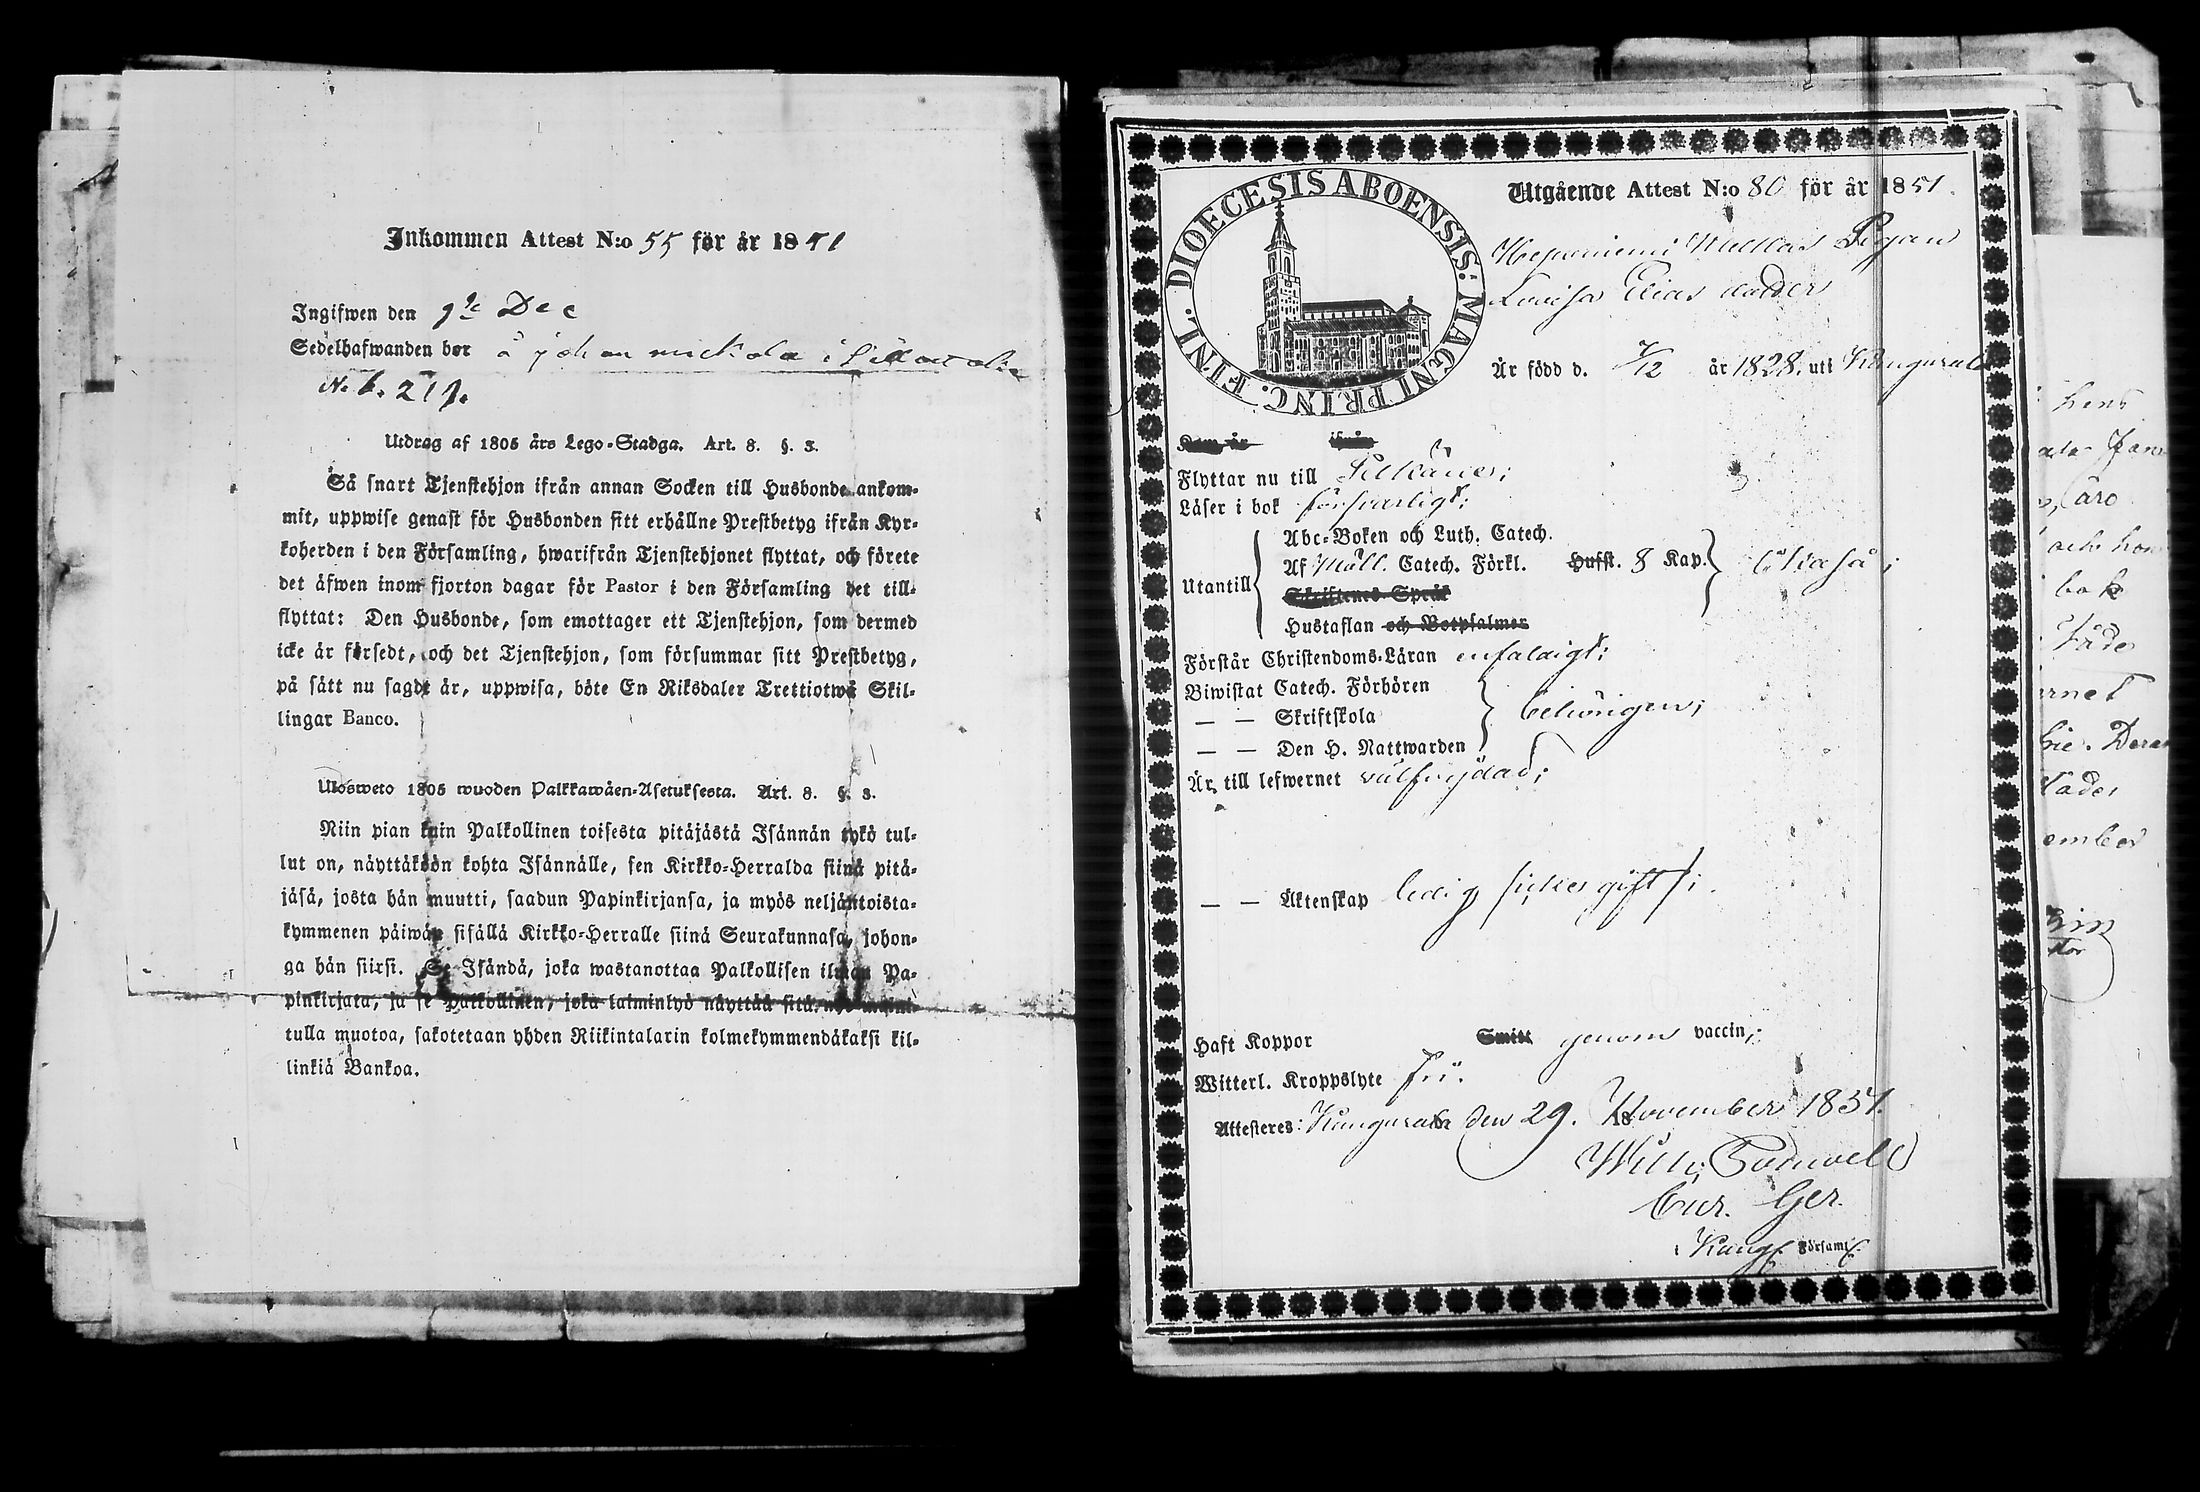 Inkommen Attest N:o 55 för år 1851
Ingifwen den 9de Dec
Sedelhafwanden bor å johan mickola i
N:o 6. 219.
Utdrag af 1805 års Lego-Stadga. Art. 8. §. 3.
Så snart Tjenstehjon ifrån annan Socken till Husbonde ankom-
mit, uppwise genast för Husbonden sitt erhållne Prestbetyg ifrån Kyr-
koherden i den Församling, hwarifrån Tjenstehjonet flyttat, och förete
det äfwen inom fjorton dagar för Pastor i den Församling det till-
flyttat: Den Husbonde, som emottager ett Tjenstehjon, som dermed
icke är försedt, och det Tjenstehjon, som försummar sitt Prestbetyg,
på sätt nu sagdt är, uppwisa, böte En Riksdaler Trettiotwå Skil-
lingar Banco.
Ulosweto 1805 wuoden Palkkawäen-Asetuksesta. Art. 8. §. 3.
Niin pian kuin Palkollinen toisesta pitäjästä Isännän tykö tul-
lut on, näyttäköön kohta Isännälle, sen Kirkko-Herralda siinä pitä-
jäsä, josta hän muutti, saadun Papinkirjansa, ja myös neljäntoista-
kymmenen päiwän sisällä Kirkko-Herralle siinä Seurakunnasa, johon-
ga hän siirsi. Se Isändä, joka wastanottaa Palkollisen ilman Pa-
pinkirjata, ja se Palkollinen, joka laiminlyö näyttää sitä, nyt maini-
tulla muotoa, sakotetaan yhden Riikintalarin kolmekymmendäkaksi kil-
linkiä Bankoa.
DIOECESIS ABOENSIS: MAGNI PRINC. FINL.
Utgående Attest N:o 80 för år 1851.
Heponiemi Pigan
Lovisa Elias dotter
Är född d. 7/12 år 1828. uti Kangasala
Som är ifrån
Flyttar nu till Pelkäne;
Läser i bok försvarligt;
Abc-Boken och Luth. Catech.
Utantill Af Möll. Catech. Förkl. Hufst. 8 Kap.
Skriftenes Språk
Hustaflan och Botpsalmer
Förstår Christendoms-Läran enfaldigt;
Biwistat Catech. Förhören
— — Skriftskola behörigen;
— — Den H. Nattwarden
Är till lefwernet välfrejdad;
— — Äktenskap ledig
Haft Koppor Smitt genom vaccin;
Witterl. Kroppslyte fri.
Attesteres: Kangasala den 29. November 1851.
Cur. Ger.
i Kang. Församl.